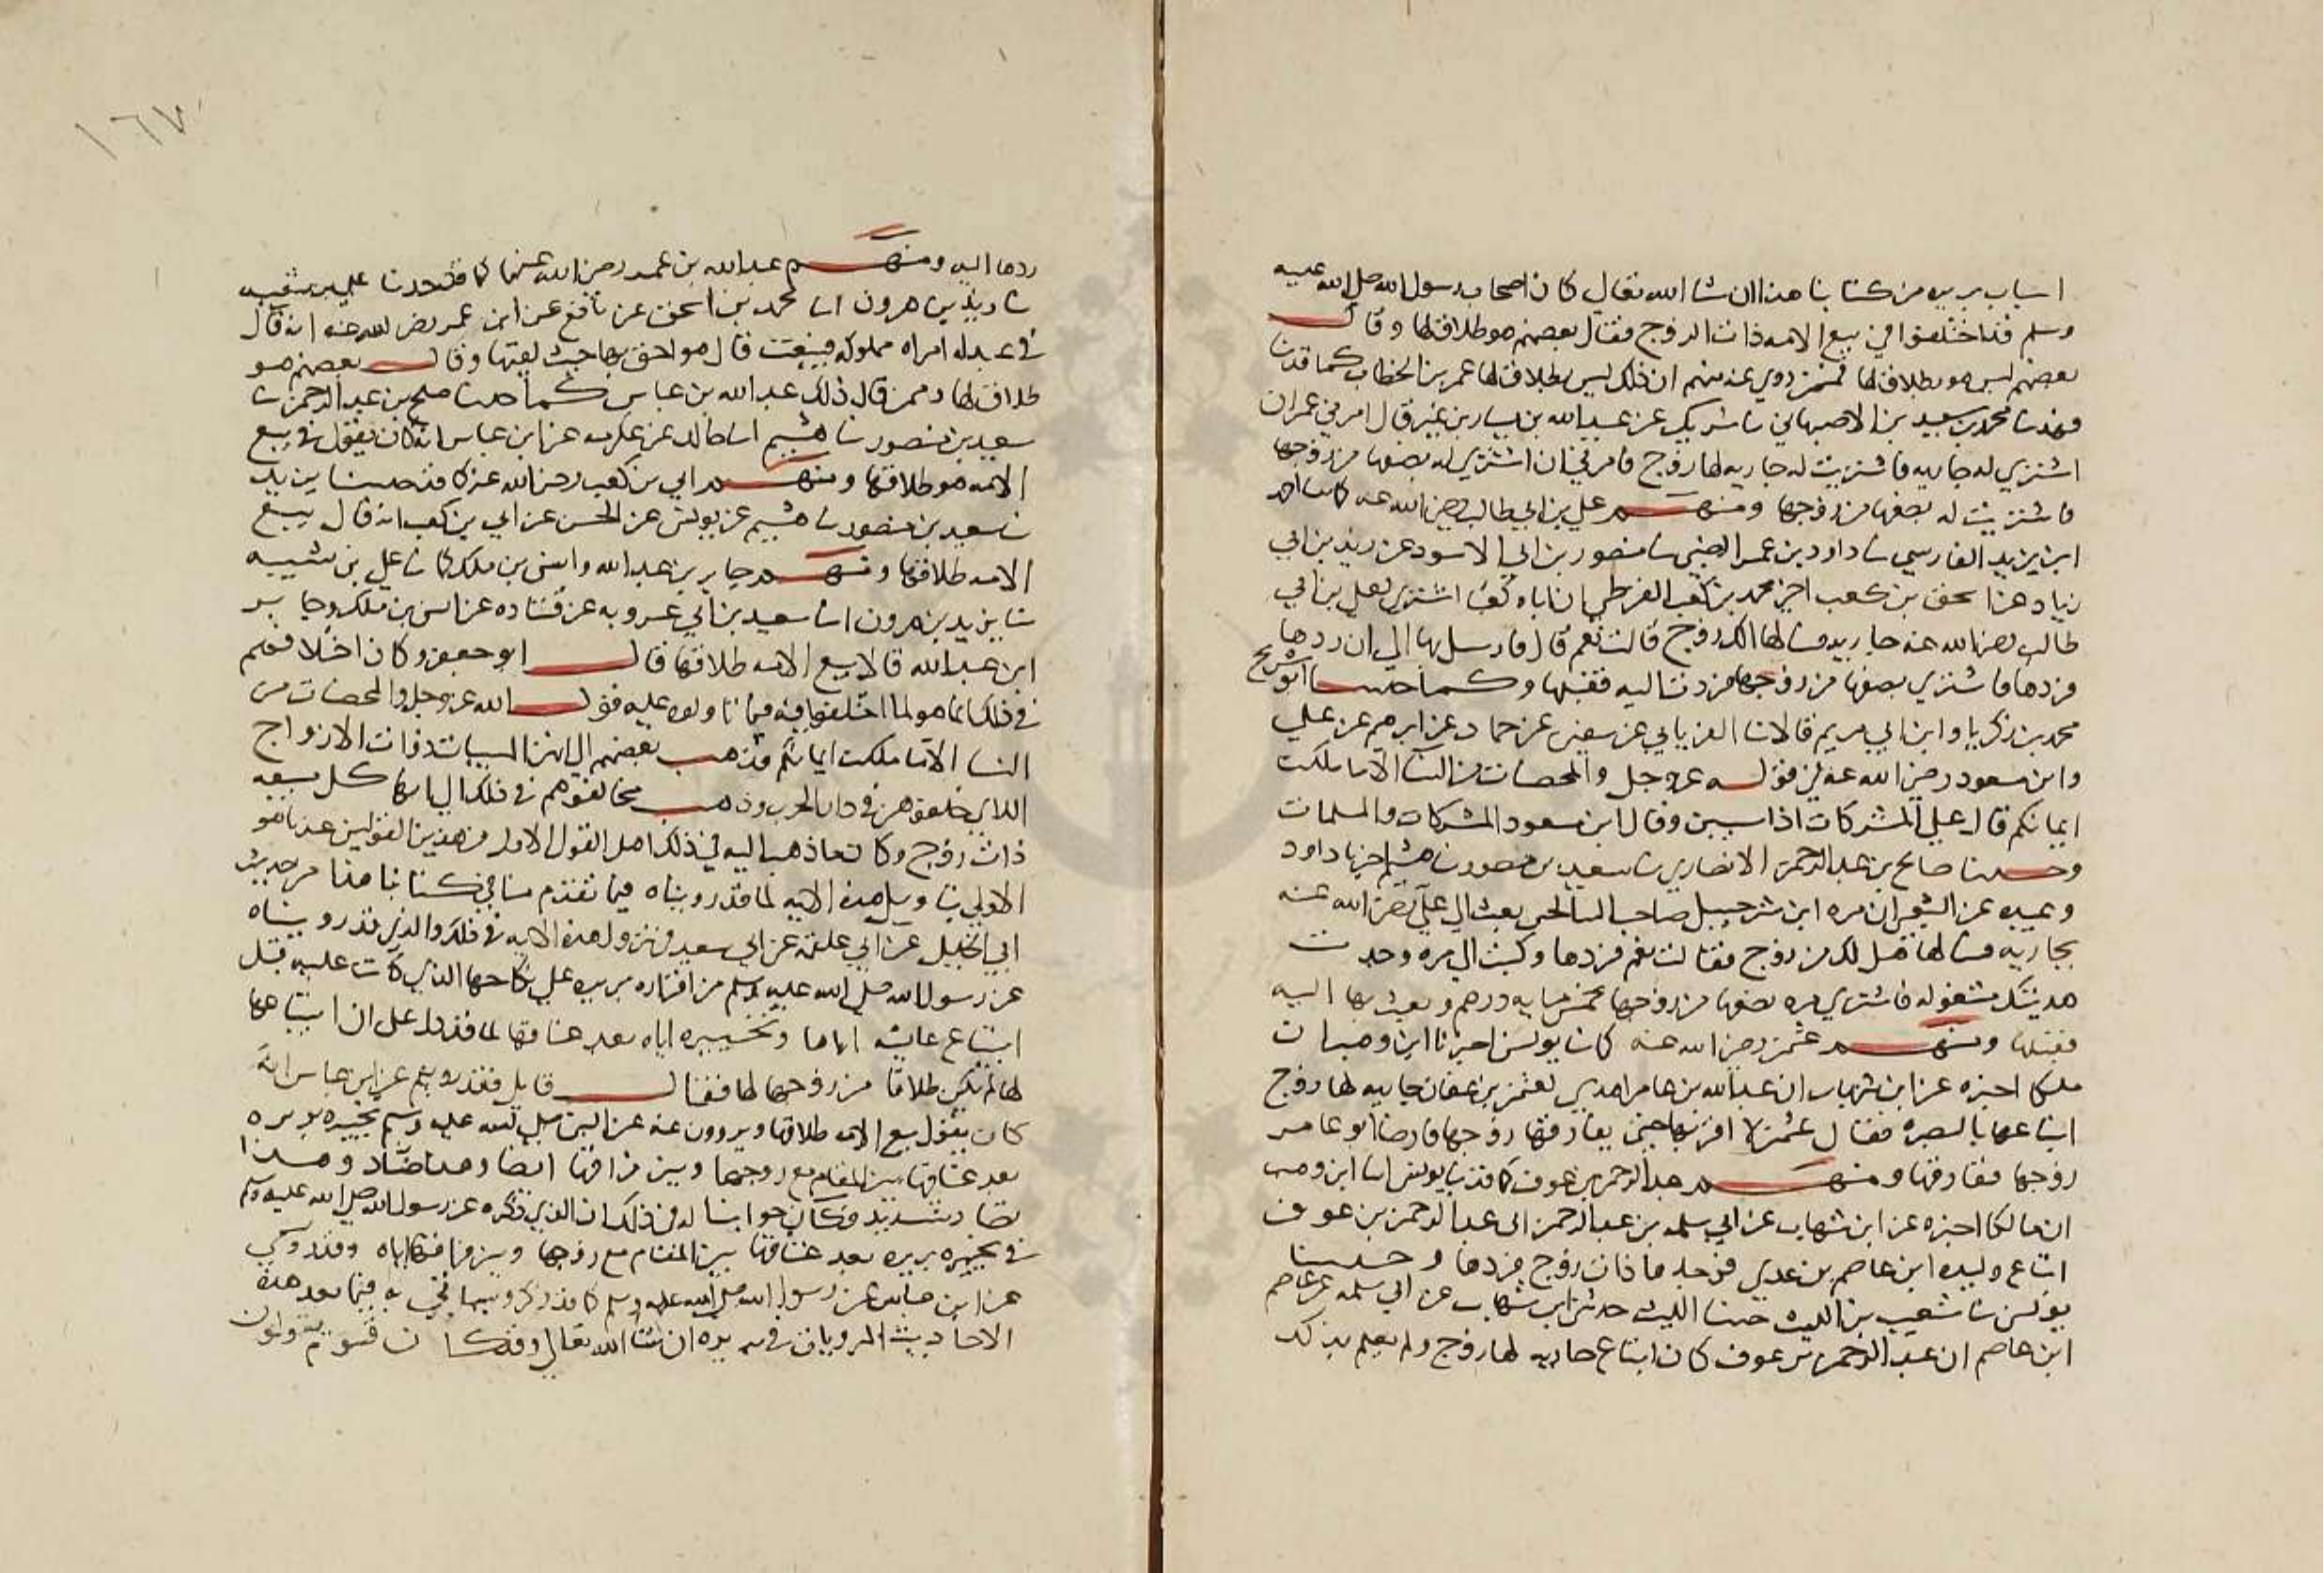 اسباب بريره من كتابنا هذا ان شا الله تعالى كان اصحاب رسول الله صلى الله عليه
وسلم قد اختلفوا في بيع الامه ذات الزوج فقال بعضهم هو طلاقها وقال
بعضهم ليس هو بطلاقها فممن روي عنه منهم ان ذلك ليس بطلاقها عمر بن الخطاب كما قد
فهد نا محمد بن سعيد بن الاصبهاني نا شريك عن عبيد الله بن يسار بن نمير قال امرني عمر ان
اشتري له جاريه فاشتريت له جاريه لها زوج فامرني ان اشتري له بضعها من زوجها
فاشتريت له بضعها من زوجها ومنهم علي بن ابي طالب رضي الله عنه كما نا احمد
ابن يزيد الفارسي نا داود بن عمر الضبي نا منصور بن ابي الاسود عن يزيد بن ابي
زياد عن اسحق بن كعب اخي محمد بن كعب القرظي ان اباه كعبا اشترى لعلي بن ابي
طالب رضي الله عنه جاريه فسالها الك زوج قالت نعم قال فارسل بها الي ان ردها
فردها فاشتري بضعها من زوجها فردت اليه فقبلها وكما حدثنا ابو شريح
محمد بن زكريا وابن ابي مريم قالا نا الفريابي عن سفين عن حماد عن ابرهيم عن علي
وابن مسعود رضي الله عنه في قوله عز وجل والمحصنات من النسا الا ما ملكت
ايمانكم قال علي المشركات اذا سبين وقال ابن مسعود المشركات والمسلمات
وحدثنا صالح بن عبد الرحمن الانصاري نا سعيد بن منصور نا هشيم اخبرنا داود
وعبيده عن الشعبي ان مره ابن شرحبيل صاحب السالحين بعث الى علي رضي الله عنه
بجاريه فسالها هل لك من زوج فقالت نعم فردها وكتب الى مره وجدت
هديتك مشغوله فاشتري مره بضعها من زوجها بخمس مايه درهم وبعث بها اليه
فقبلها ومنهم عثمن رضي الله عنه كما نا يونس اخبرنا ابن وهب ان
ملكا اخبره عن ابن شهاب ان عبد الله بن عامر اهدى لعثمن بن عفان جاريه لها زوج
ابتاعها بالبصره فقال عثمن لا اقربها حتى يفارقها زوجها فارضا ابو عامر
زوجها ففارقها ومنهم عبد الرحمن بن عوف كما قد نا يونس انا ابن وهب
ان مالكا اخبره عن ابن شهاب عن ابي سلمه بن عبد الرحمن ان عبد الرحمن بن عوف
ابتاع وليده ابن عاصم بن عدي فوجدها ذات زوج فردها وحدثنا
يونس نا شعيب بن الليث حدثنا الليث حدثني ابن شهاب عن ابي سلمه عن عاصم
ابن عاصم ان عبد الرحمن بن عوف كان ابتاع جاريه لها زوج ولم يعلم بذلك
١٦٧
ردها اليه ومنهم عبد الله بن عمر رضي الله عنهما كما قد حدثنا علي بن شيبه
نا يزيد بن هرون انا محمد بن اسحق عن نافع عن ابن عمر رضي الله عنه انه قال
في عبد له امراه مملوكه فبيعت قال هو احق بها حيث لقيها وقال بعضهم هو
طلاقها وممن قال ذلك عبد الله بن عباس كما حدثنا صلح بن عبد الرحمن نا
سعيد بن منصور نا هشيم انا خالد عن عكرمه عن ابن عباس انه كان يقول في بيع
الامه هو طلاقها ومنهم ابي بن كعب رضي الله عنه كما قد حدثنا يزيد
نا سعيد بن منصور نا هشيم عن يونس عن الحسن عن ابي بن كعب انه قال بيع
الامه طلاقها ومنهم جابر بن عبد الله وانس بن ملك كما نا علي بن شيبه
نا يزيد بن هرون انا سعيد بن ابي عروبه عن قتاده عن انس بن ملك وجابر
ابن عبد الله قالا بيع الامه طلاقها قال ابو جعفر وكان اختلافهم
في ذلك انما هو لما اختلفوا فيه فيما تاولوه عليه قول الله عز وجل والمحصنات من
النسا الا ما ملكت ايمانكم فذهب بعضهم الى انهن المسبيات ذوات الازواج
اللاتي خلفوهن في دار الحرب وذهب مخالفوهم في ذلك الى انها كل مبيعه
ذات زوج وكان ما ذهب اليه في ذلك اهل القول الاول من هذين القولين عندنا هو
الاولى بتاويل هذه الايه لما قد رويناه فيما تقدم منا في كتابنا هذا من حديث
ابي الخليل عن ابي علقمه عن ابي سعيد في نزول هذه الايه في ذلك والذي قد رويناه
عن رسول الله صلى الله عليه وسلم من اقراره بريره على نكاحها الذي كانت عليه قبل
ابتياع عايشه اياها وتخييره اياها بعد عتاقها لما قد دل على ان ابتياعها
لها لم يكن طلاقا من زوجها لها فقال قايل فقد رويتم عن ابن عباس انه
كان يقول بيع الامه طلاقها وتروون عنه عن النبي صلى الله عليه وسلم تخييره بريره
بعد عتاقها بين المقام مع زوجها وبين فراقها ايضا وهذا تضاد وهذا
تضاد شديد فكان جوابنا له في ذلك ان الذي ذكره عن رسول الله صلى الله عليه وسلم
في تخييره بريره بعد عتاقها بين المقام مع زوجها وبين فراقها اياه وقد روي
عن ابن عباس عن رسول الله صلى الله عليه وسلم كما قد ذكر وسياتي به فيما بعد هذه
الاحاديث المرويات في بريره ان شا الله تعالى وقد كان قوم يقولون